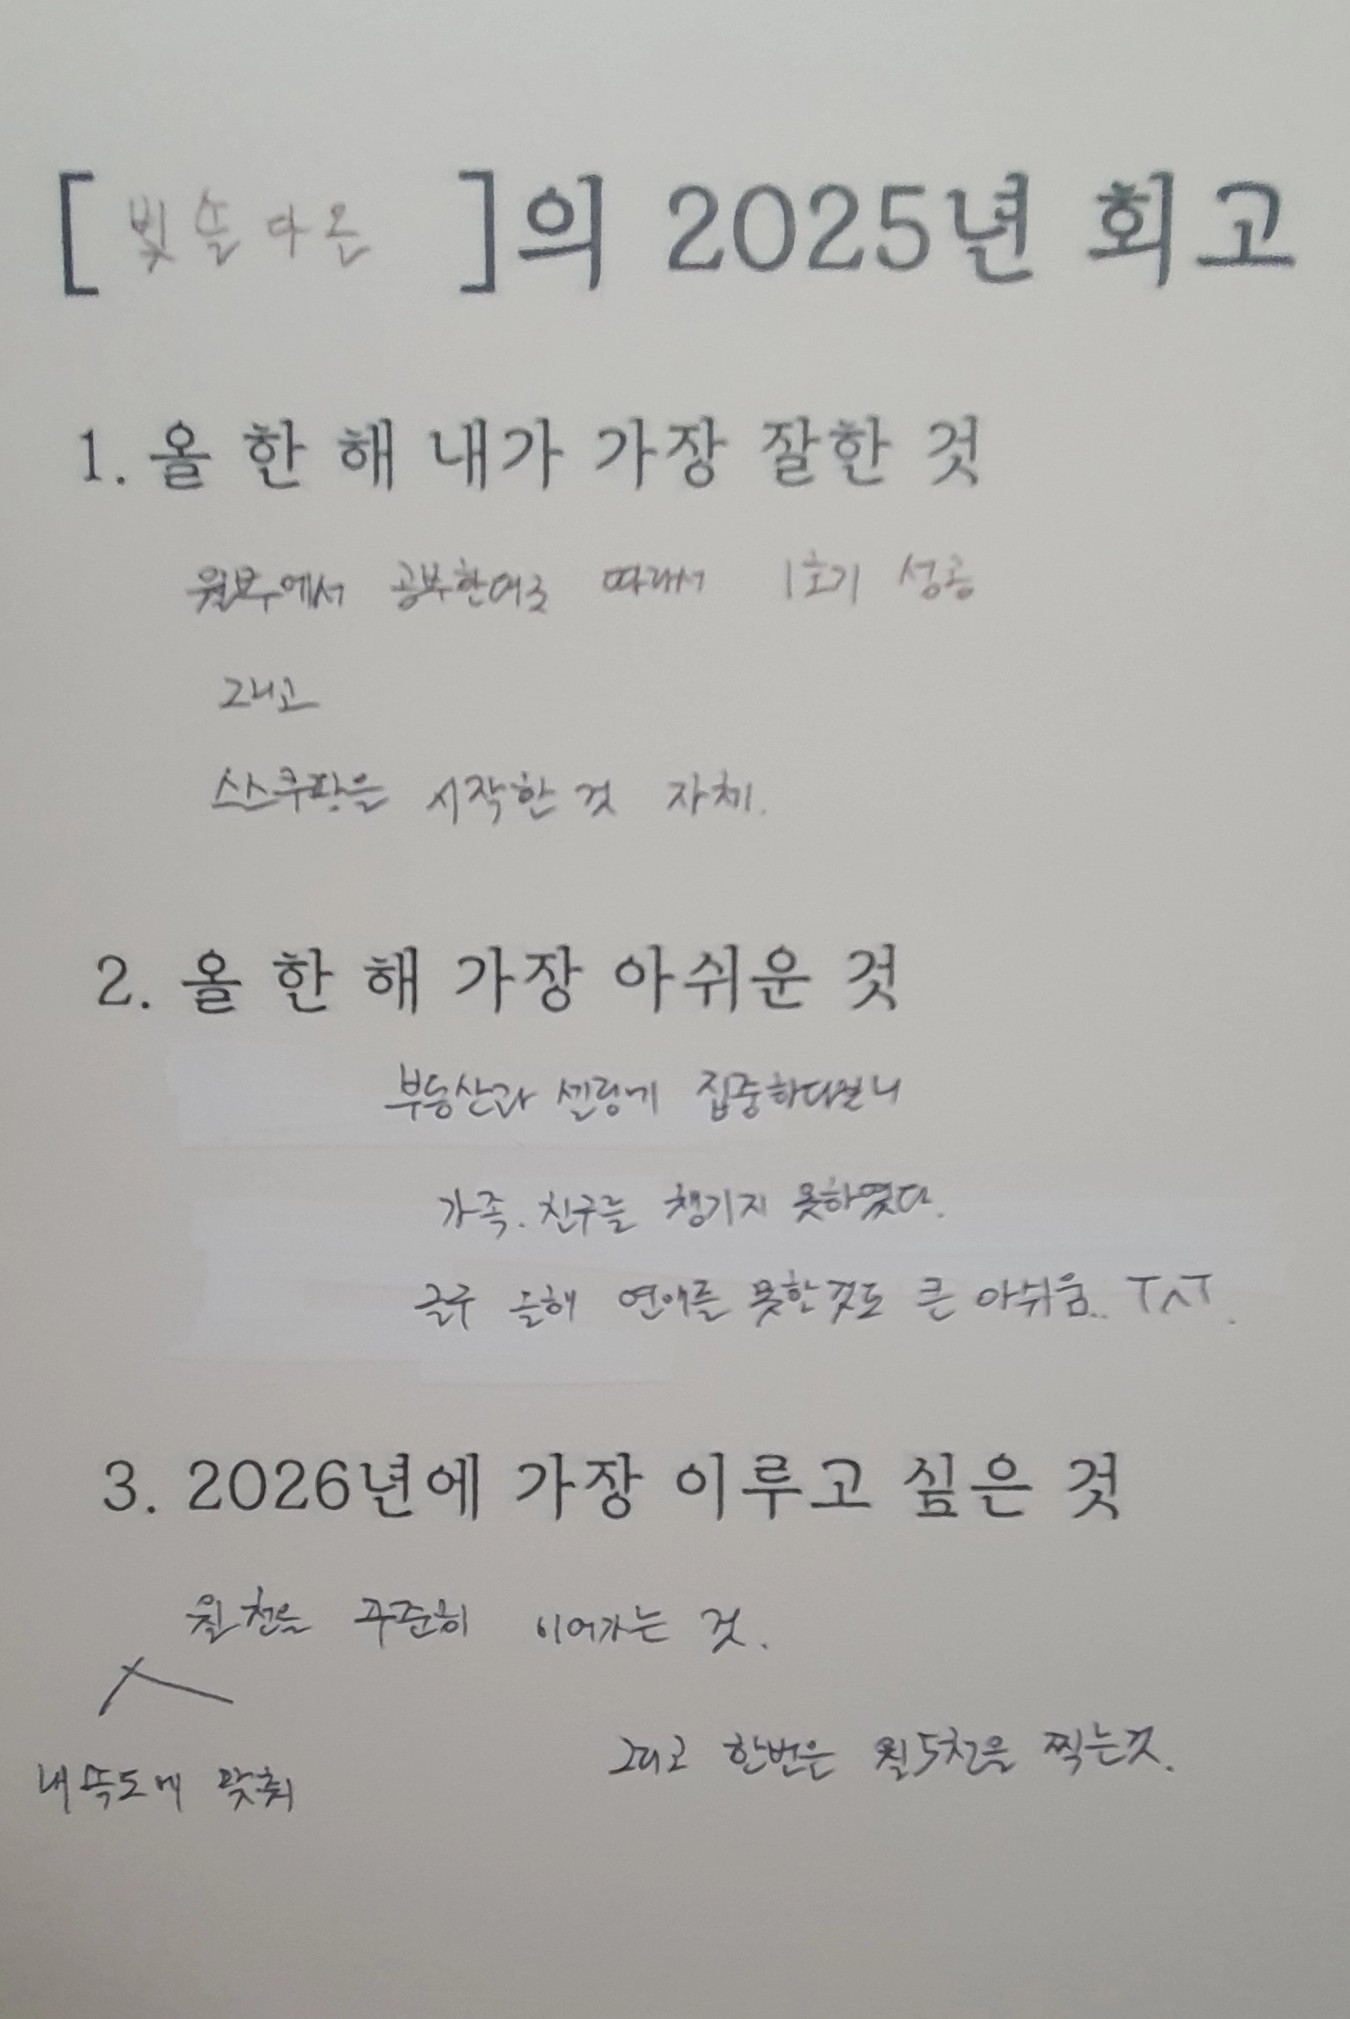 [ 빛솔다온 ]의 2025년 회고
1. 올 한 해 내가 가장 잘한 것
월부에서 공부한대로 따라서 1호기 성공
그리고
스스쿠팡을 시작한 것 자체.
2. 올 한 해 가장 아쉬운 것
부동산과 셀링에 집중하다보니
가족. 친구를 챙기지 못하였다.
글구 올해 연애를 못한것도 큰 아쉬움.. ㅜㅅㅜ.
3. 2026년에 가장 이루고 싶은 것
월천을 꾸준히 이어가는 것.
내 속도에 맞춰
그리고 한번은 월5천을 찍는것.